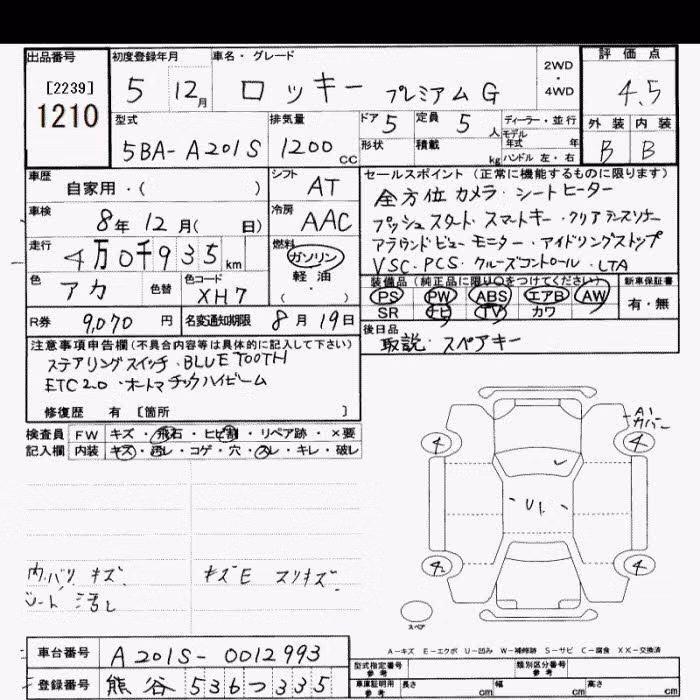 出品番号 初度登録年月 車名・グレード 評価点
[2239] 5 12月 ロッキー プレミアム G 2WD・4WD 4.5
1210
型式 排気量 ドア 定員 ディーラー・並行 外装 内装
5BA-A201S 1200cc 5 5人 モデル年式 年 B B
形状 積載 kg ハンドル 左・右
車歴 シフト セールスポイント(正常に機能するものに限ります)
自家用・( ) AT 全方位カメラ・シートヒーター
車検 冷房 プッシュスタート・スマートキー・クリアランスソナー
8年12月( 日) AAC アラウンドビューモニター・アイドリングストップ
走行 燃料 VSC・PCS・クルーズコントロール・LTA
4万0千935km ガソリン・軽油・( )
色 色替 色コード 装備品(純正品に限り○をつけてください) 新車保証書
アカ XH7 PS PW ABS エアB AW 有・無
SR ナビ TV カワ
R券 9,070円 名変通知期限 8月19日 後日品
取説・スペアキー
注意事項申告欄(不具合内容等は具体的に記入して下さい)
ステアリングスイッチ・BLUETOOTH
ETC2.0・オートマチックハイビーム
修復歴 有 [箇所 ]
検査員 FW キズ・飛石・ヒビ割・リペア跡・×要
記入欄 内装 キズ・汚レ・コゲ・穴・スレ・キレ・破レ
A1
カバー
4 4
U1
内バリ キズ キズE スリキズ
シート 汚レ
4 4
スペア
A-キズ E-エクボ U-凹み W-補修跡 S-サビ C-腐食 XX-交換済
車台番号 A201S-0012993 型式指定番号 参考 類別区分番号 参考
登録番号 熊谷 536つ335 車庫証明用 参考 長さ cm 幅 cm 高さ cm